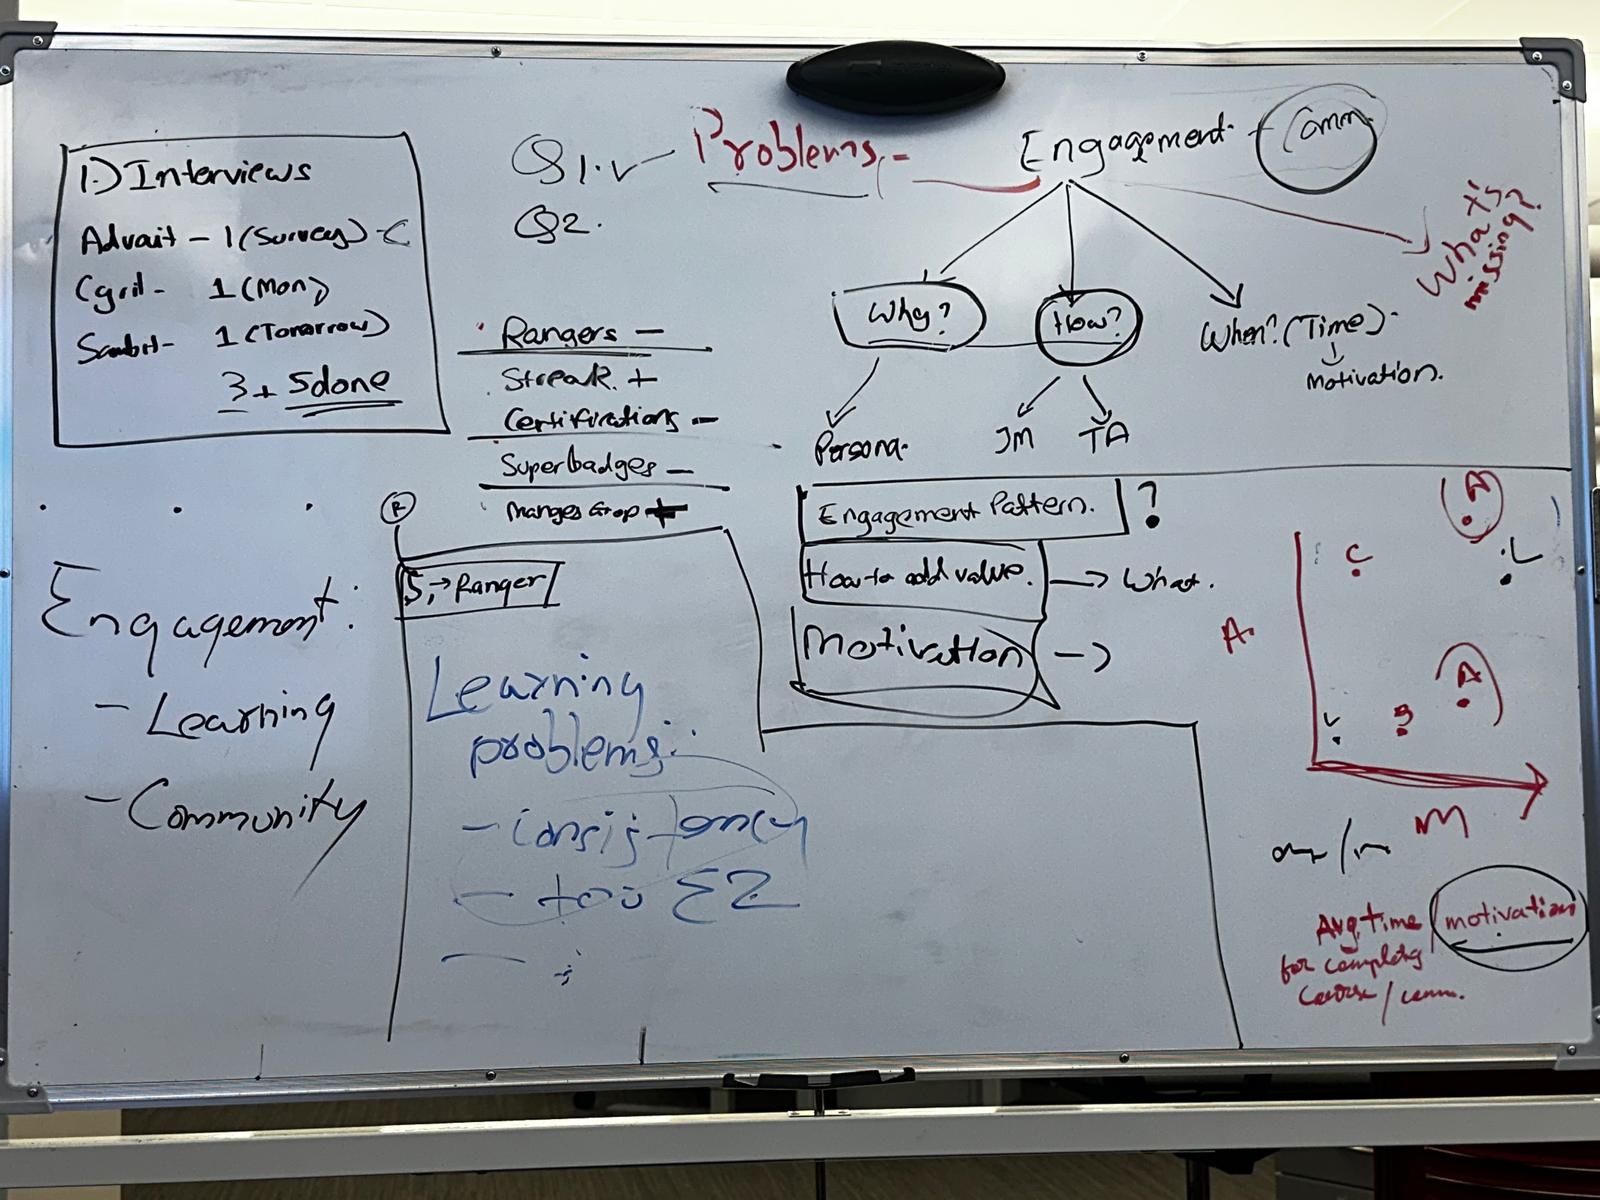 1.) Interviews
Advait - 1 (Survey) - C
Cyril - 1 (Mon)
Sambit - 1 (Tomorrow)
3 + 5 done
Q1. ✓ - Problems, -
Q2.
Engagement - Comm.
What's missing?
Why?
How?
When? (Time).
motivation.
Persona.
JM
TA
Rangers -
Streak. +
Certifications -
Superbadges -
+
Engagement Pattern. ?
How to add value. → What.
Motivation →
R
5, → Ranger
Engagement:
- Learning
- Community
Learning
problems:
- Consistency
- too EZ
A
C
L
A.
A
L
B
M
Avg. time / motivation
for completing
course / comm.